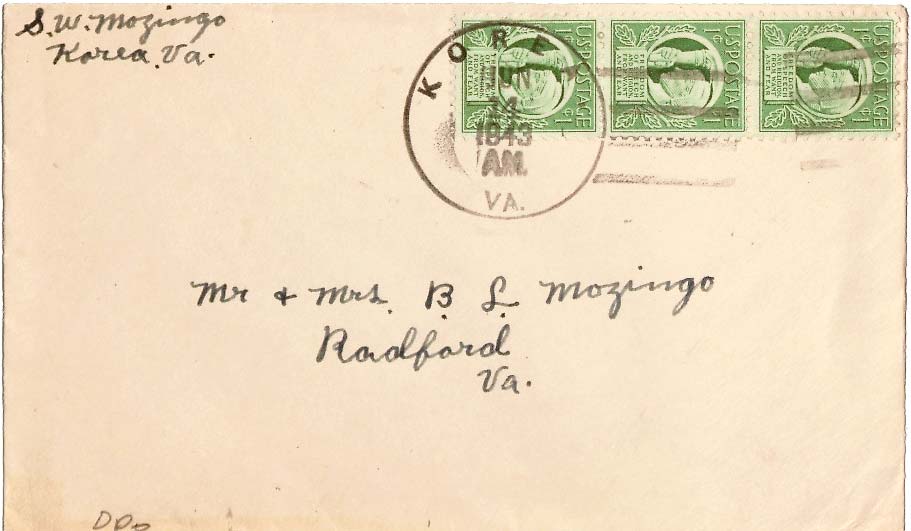 S. W. Mozingo
Korea, Va.
KORE
JUN
14
1943
A.M.
VA.
U.S. POSTAGE
1¢ 1¢
FREEDOM OF SPEECH AND RELIGION, FROM WANT AND FEAR
U.S. POSTAGE
1¢ 1¢
FREEDOM OF SPEECH AND RELIGION, FROM WANT AND FEAR
U.S. POSTAGE
1¢ 1¢
FREEDOM OF SPEECH AND RELIGION, FROM WANT AND FEAR
Mr & Mrs. B. L. Mozingo
Radford
Va.